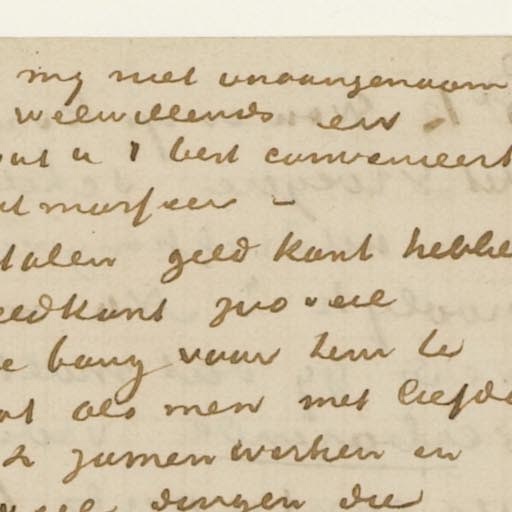 my niet onaangenaam
welwillends en
u 't best convenieert
marseer -
talen geld kant hebbe
eldkant zoo veel
e bang voor hem te
at als men met liefde
zamenwerken en
dingen die